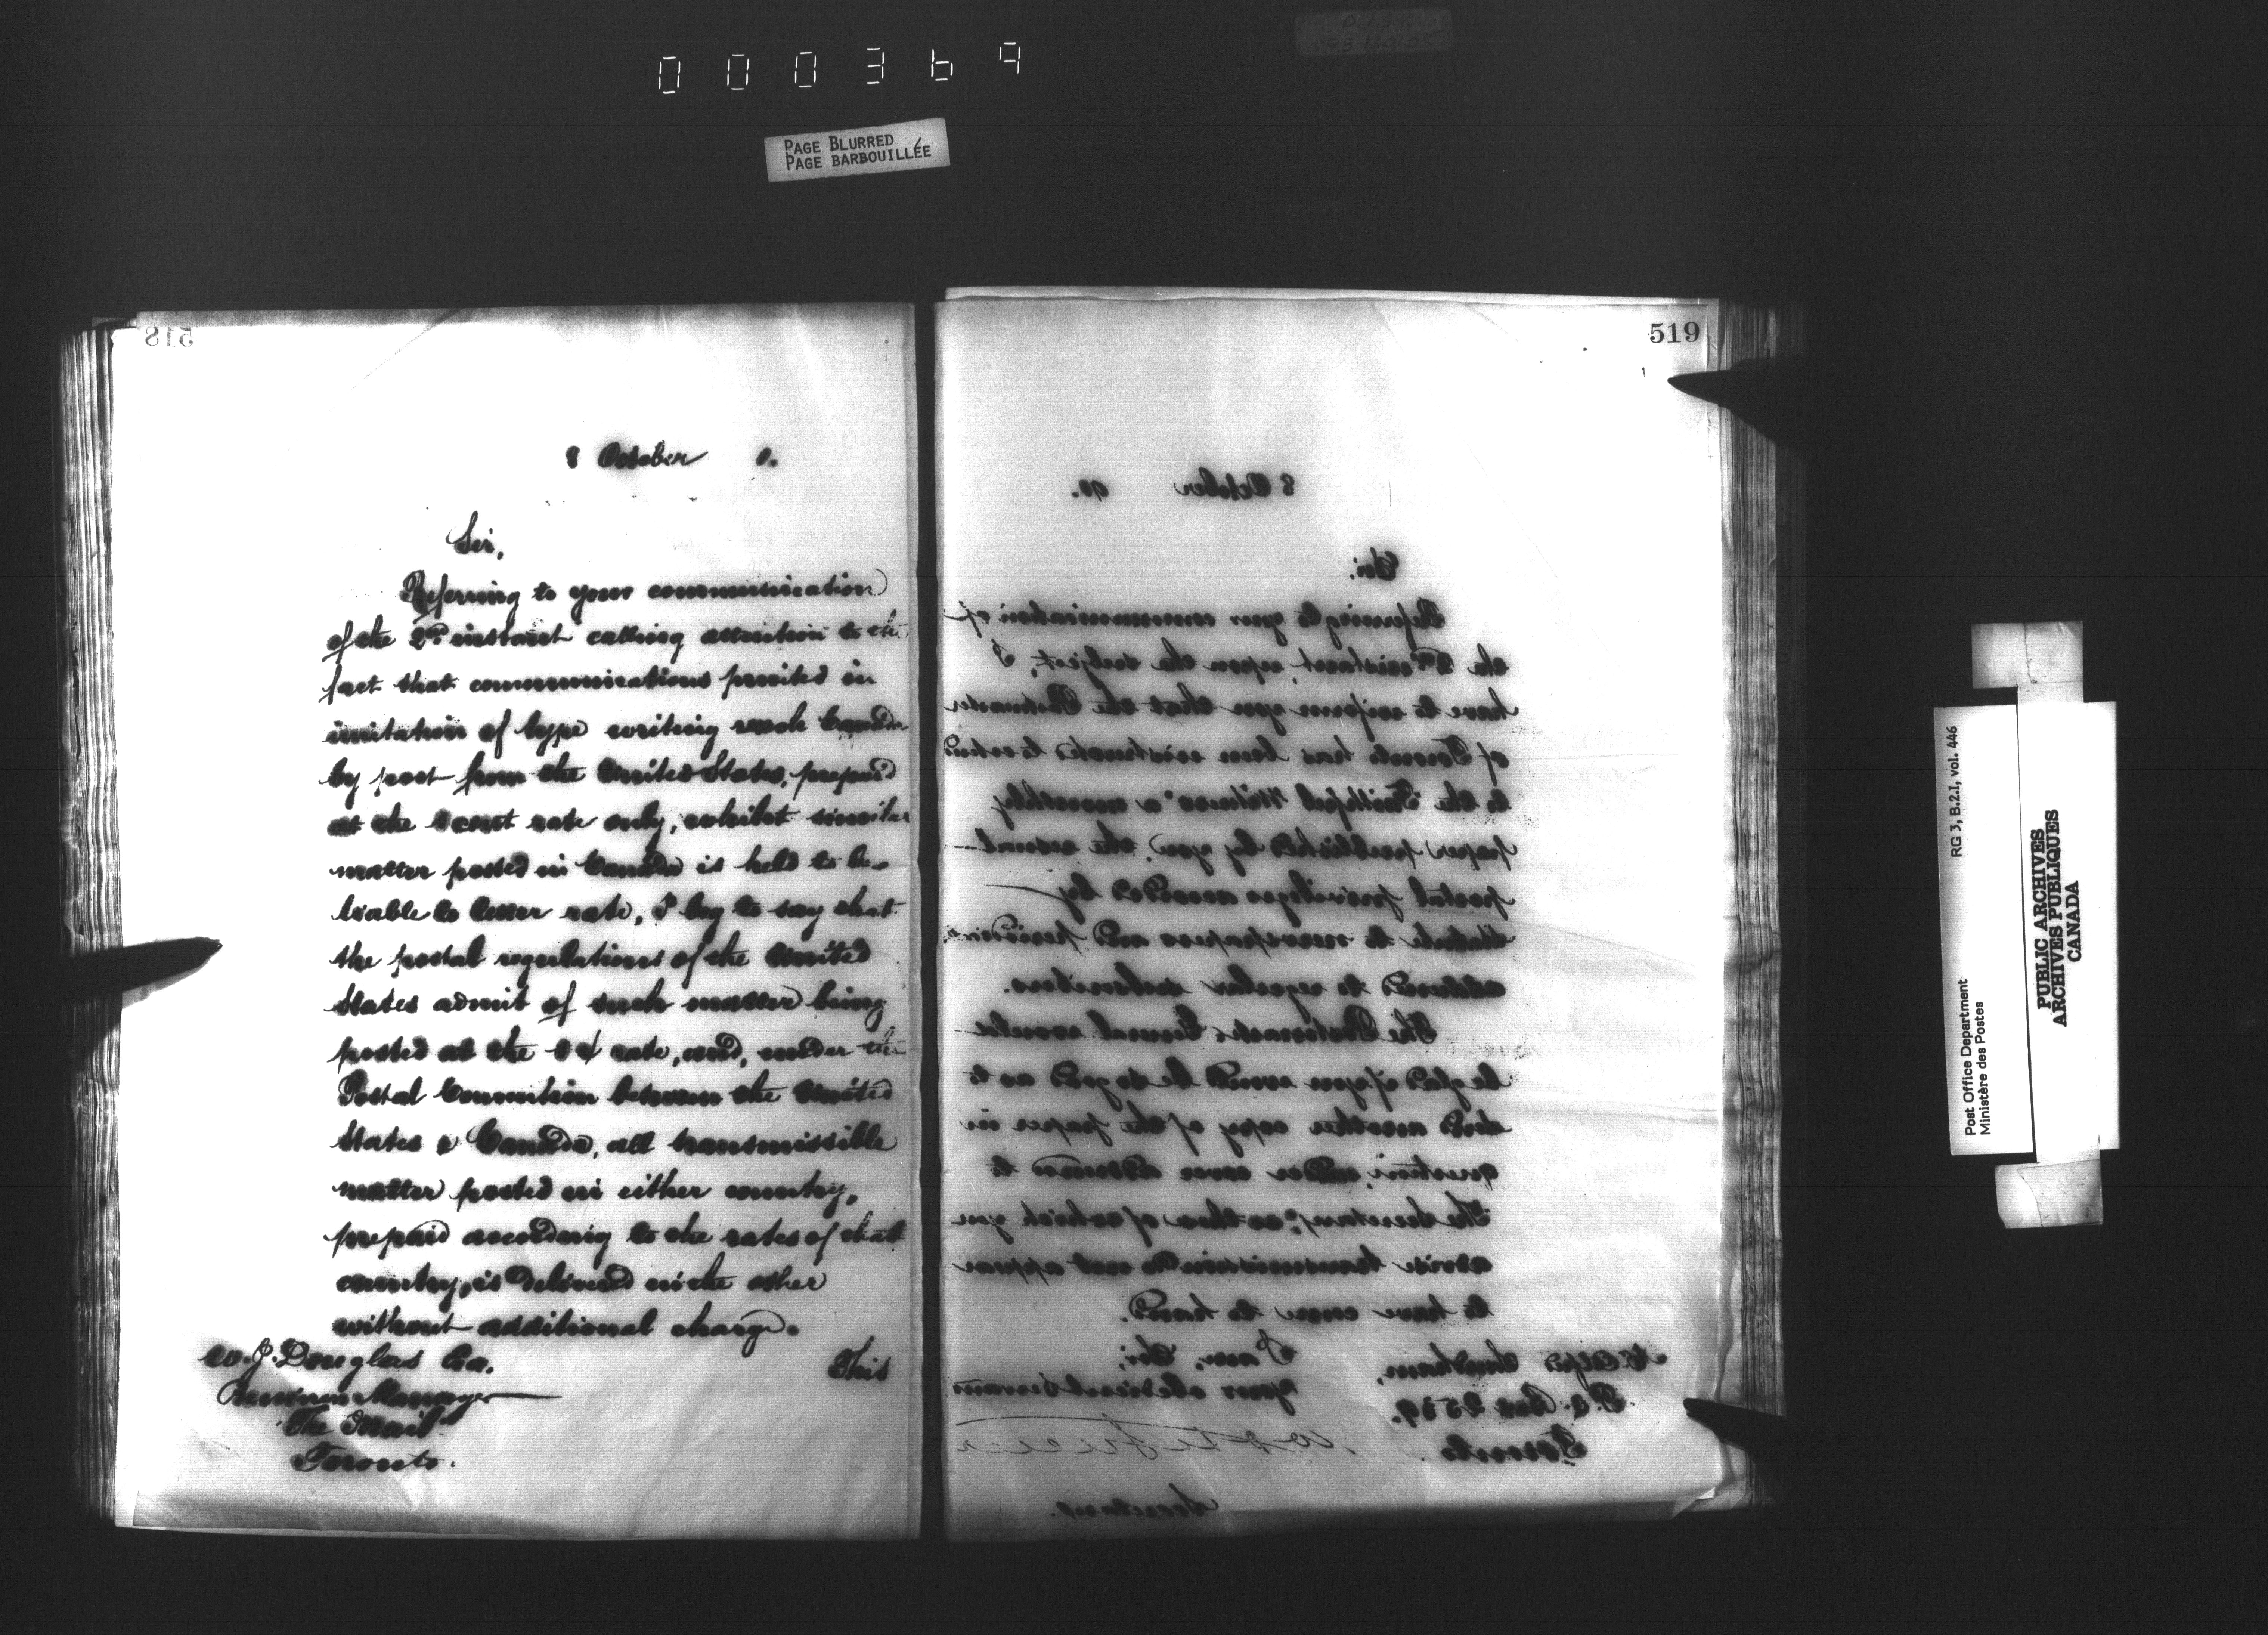 000369
PAGE BLURRED
PAGE BARBOUILLÉE
518
8 October 0.
Sir,
Referring to your communication
of the 2nd instant calling attention to the
fact that communications printed in
imitation of type writing reach Canada
by post from the United States, prepaid
at the 1 cent rate only, whilst similar
matter posted in Canada is held to be
liable to letter rate, I beg to say that
the postal regulations of the United
States admit of such matter being
posted at the 1 ¢ rate, and, under the
Postal Convention between the United
States & Canada, all transmissible
matter posted in either country,
prepaid according to the rates of that
country, is delivered in the other
without additional charge.
This
W. J. Douglas Esq.
Business Manager
"The Mail"
Toronto.
519
8 October 90.
Sir,
Referring to your communication of
the instant, upon the subject, I
have to inform you that the Postmaster
of Toronto has been instructed to extend
to the "Faithful Witness" a monthly
paper published by you, the usual
postal privileges accorded by
Statute to newspapers and periodicals
addressed to regular subscribers.
The Postmaster General would
be glad if you would be so good as to
send another copy of the paper in
question, under cover addressed to
The Secretary, as those of which you
advise transmission do not appear
to have come to hand.
I am, Sir,
Your obedient Servant
Secretary.
Alfred Sandham,
P.O. Box 2539.
Toronto.
RG 3, B.2.I, vol. 446
Post Office Department
Ministère des Postes
PUBLIC ARCHIVES
ARCHIVES PUBLIQUES
CANADA